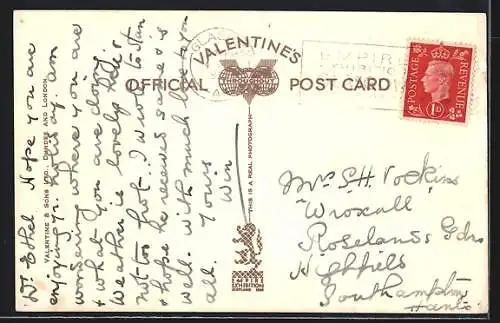 Dr Ethel Hope you are
enjoying yr. holiday. am
wondering where you are
& what you are doing.
Weather is lovely here &
not too hot. I wrote to Stan
& hope he received same & is
well. With much love to you
all Yours
Win
VALENTINE & SONS LTD., DUNDEE AND LONDON.
VALENTINE'S
OFFICIAL POST CARD
THIS IS A REAL PHOTOGRAPH
EMPIRE
EXHIBITION
SCOTLAND 1938
EMPIRE
POSTAGE REVENUE
1D
Mrs S H
Wroxall
Roselands Gdns
Highfield
Southampton
Hants